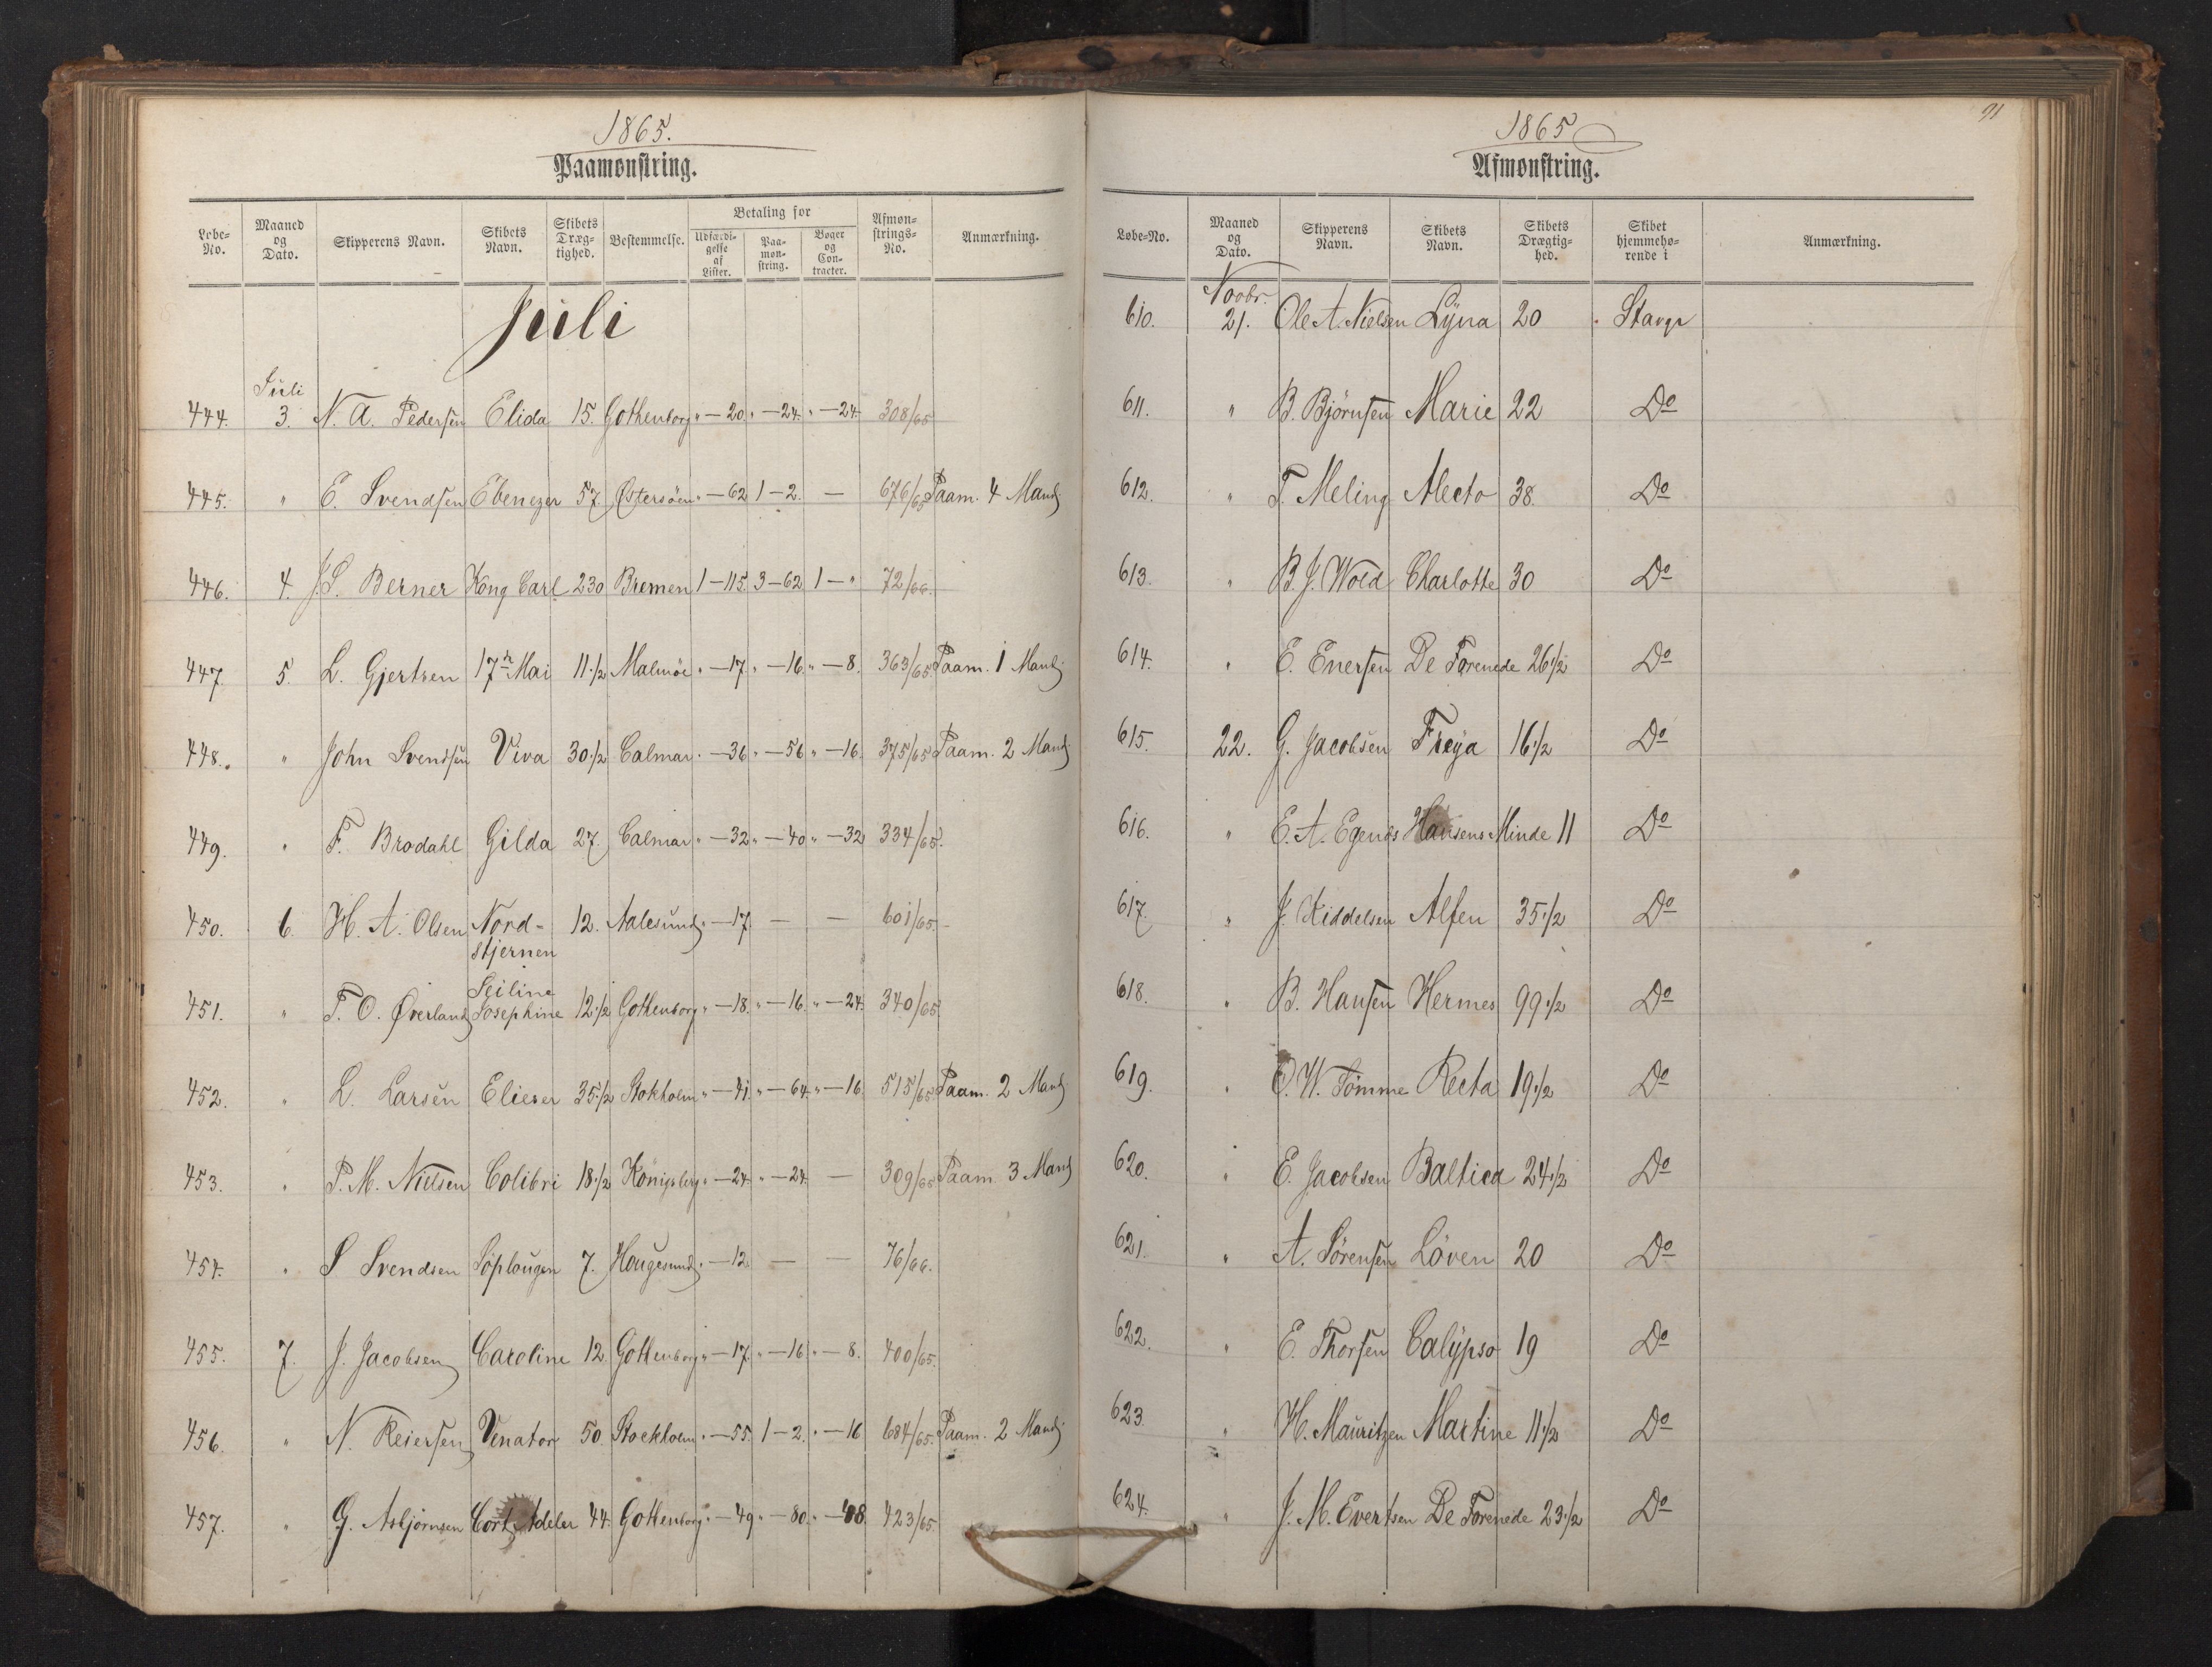 1865.
Paamønstring.
Løbe-No. | Maaned og Dato. | Skipperens Navn. | Skibets Navn. | Skibets Dræg-tighed. | Bestemmelse. | Betaling for | Udfærdi-gelse af Lister. | Paa-møn-string. | Bøger og Con-tracter. | Afmøn-strings-No. | Anmærkning.
Juli
444. Juli 3. N. A. Pedersen Elida 15. Gothenborg " — 20. " — 24. " — 24. 308/65
445. " E. Svendsen Ebenezer 57. Østersöen " — 62 1 — 2. — 676/65 Paam. 4 Mand
446. 4. J. S. Berner Kong Carl 230 Bremen 1 — 115. 3 — 62 1 — " 72/66.
447. 5. L. Gjertsen 17de Mai 11 1/2 Malmöe " — 17. " — 16. " — 8. 363/65. Paam. 1 Mand
448. " John Svendsen Viva 30 1/2 Calmar " — 36 " — 56 " — 16. 375/65 Paam. 2 Mand
449. " F. Brodahl Gilda 27. Calmar " — 32 " — 40 " — 32 334/65.
450. 6. H. A. Olsen Nord-stjernen 12. Aalesund " — 17. — — 601/65.
451. " T. O. Øverland Seiline Josephine 12 1/2 Gothenborg " — 18. " — 16. " — 24. 340/65
452. " L. Larsen Elieser 35 1/2 Stokholm " — 41. " — 64 " — 16. 515/65 Paam. 2 Mand
453. " P. M. Nielsen Colibri 18 1/2 Königsberg " — 24. " — 24. — 309/65 Paam. 3 Mand
454. " S Svendsen Söplougen 7. Hougesund " — 12. — — 76/66.
455. 7. J. Jacobsen Caroline 12. Gothenborg " — 17. " — 16. " — 8. 400/65.
456. " N. Reiersen Venator 50. Stockholm " — 55. 1 — 2. " — 16 684/65. Paam. 2 Mand
457. " G. Asbjørnsen Cort Adeler 44. Gothenborg " — 49 " — 80. " — 48. 423/65.
91
1865
Afmønstring.
Løbe-No. | Maaned og Dato. | Skipperens Navn. | Skibets Navn. | Skibets Drægtig-hed. | Skibet hjemmehø-rende i | Anmærkning.
610. Novbr. 21. Ole A. Nielsen Lyna 20 Stavgr
611. " B. Bjørnsen Marie 22 Do
612. " T. Meling Alecto 38. Do
613. " B. J. Wold Charlotte 30 Do
614. " E. Enersen De Forenede 26 1/2 Do
615. 22. G. Jacobsen Freya 16 1/2 Do
616. " E. A. Egenös Hansens Minde 11 Do
617. " J. Kiddelsen Alfen 35 1/2 Do
618. " B. Hansen Hermes 99 1/2 Do
619. " O. W. Tömme Recta 19 1/2 Do
620. " E. Jacobsen Baltica 24 1/2 Do
621. " A. Sörensen Löven 20 Do
622. " E. Thorsen Calypso 19 Do
623. " H. Mauritzen Martine 11 1/2 Do
624. " J. M. Evertsen De Forenede 23 1/2 Do